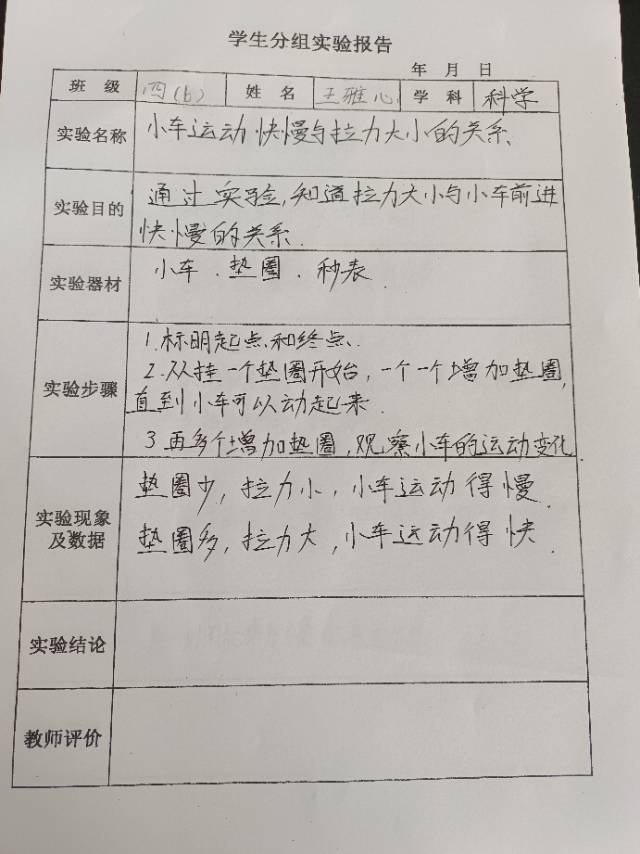 学生分组实验报告
年 月 日
班 级 四(6) 姓 名 王雅心 学 科 科学
实验名称 小车运动快慢与拉力大小的关系.
实验目的 通过实验,知道拉力大小与小车前进
快慢的关系.
实验器材 小车.垫圈.秒表.
实验步骤 1.标明起点和终点.
2.从挂一个垫圈开始,一个一个增加垫圈,
直到小车可以动起来.
3.再多个增加垫圈,观察小车的运动变化
实验现象及数据 垫圈少,拉力小,小车运动得慢.
垫圈多,拉力大,小车运动得快.
实验结论
教师评价